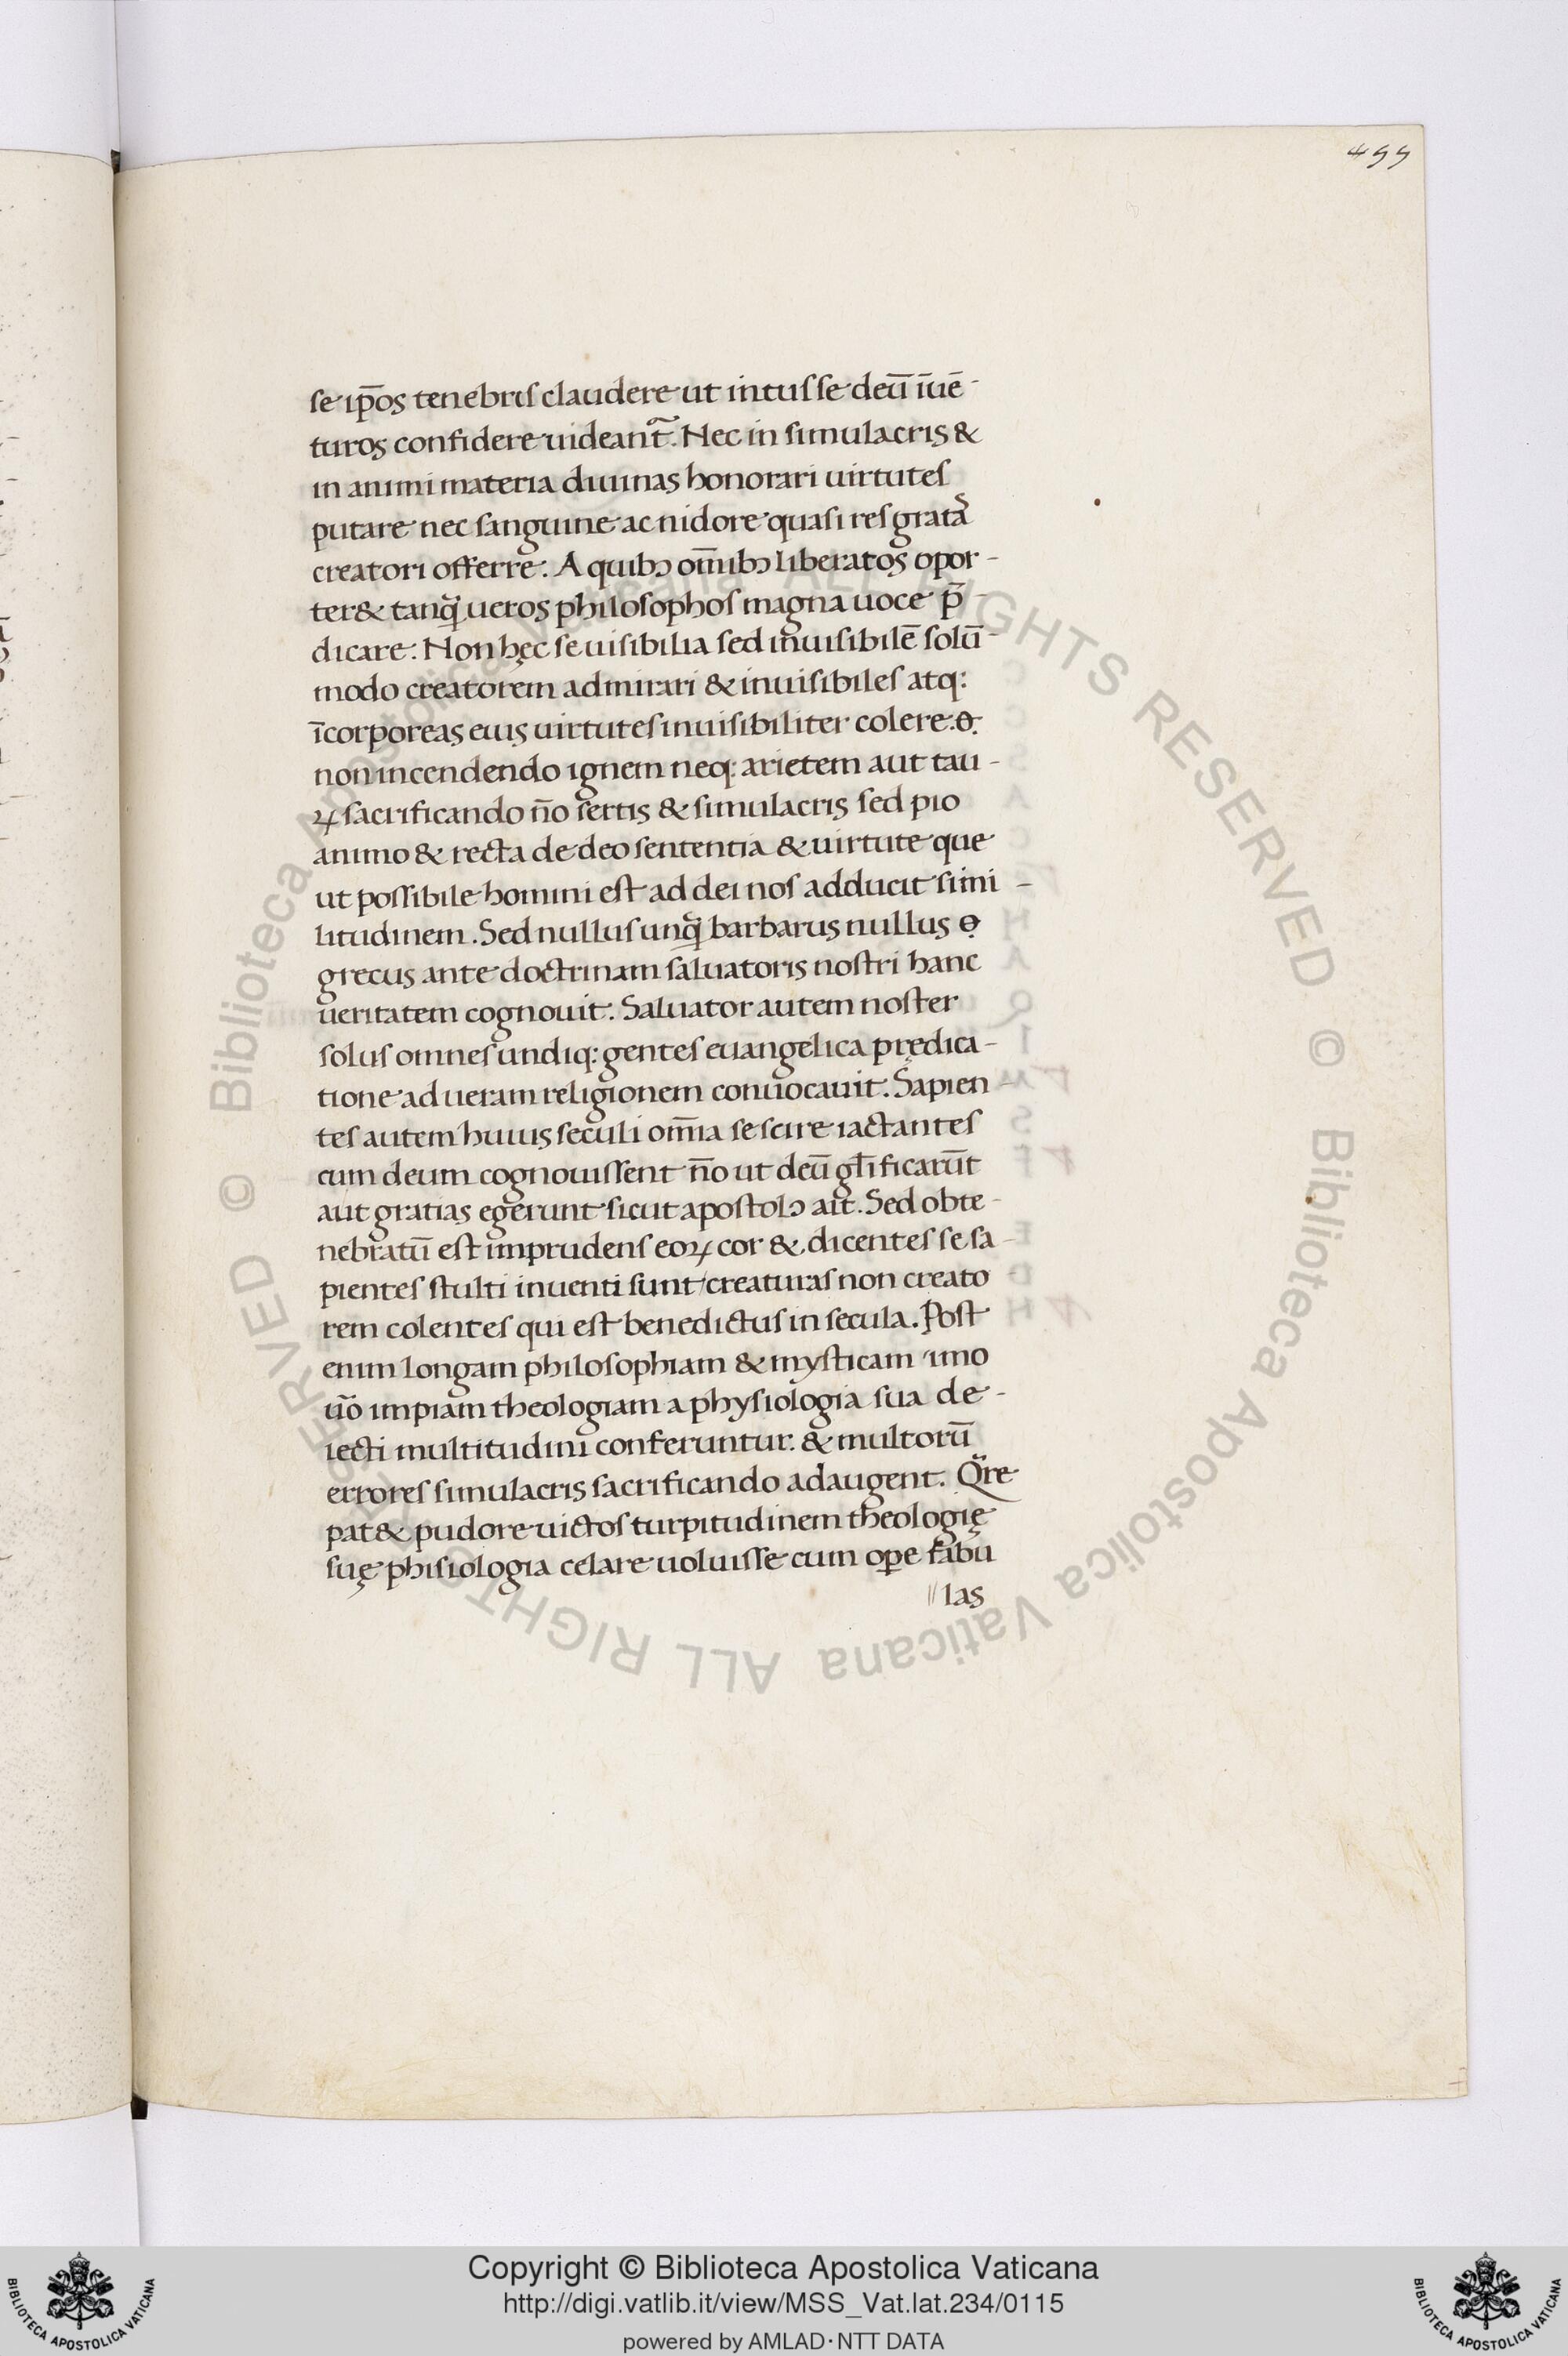 499
se ip̄os tenebris claudere ut intus se deū īuē-
turos confidere uideant̃. Nec in simulacris &
in animi materia diuinas honorari uirtutes
putare nec sanguine ac nidore quasi res gratas
creatori offerre. A quibꝰ om̄ibꝰ liberatos opor-
ter& tanq̃ ueros philosophos magna uoce p̄-
dicare. Non hęc se uisibilia sed inuisibilē solū-
modo creatorem admirari & inuisibiles atq:
īcorporeas eius uirtutes inuisibiliter colere. ꝙ
non incendendo ignem neq: arietem aut tau-
ꝝ sacrificando n̄o sertis & simulacris sed pio
animo & recta de deo sententia & uirtute que
ut possibile homini est ad dei nos adducit simi-
litudinem. Sed nullus unq̃ barbarus nullus ꝙ
grecus ante doctrinam saluatoris nostri hanc
ueritatem cognouit. Saluator autem noster
solus omnes undiq: gentes euangelica prędica-
tione ad ueram religionem conuocauit. Sapien-
tes autem huius seculi om̄ia se scire iactantes
cum deum cognouissent n̄o ut deū gl̄ificarūt
aut gratias egerunt sicut apostolꝰ ait. Sed obte-
nebratū est imprudens eoꝝ cor & dicentes se sa-
pientes stulti inuenti sunt creaturas non creato
rem colentes qui est benedictus in secula. Post
enim longam philosophiam & mysticam imo
ūo impiam theologiam a physiologia sua de-
iecti multitudini conferuntur. & multorū
errores simulacris sacrificando adaugent. Q̃re
pat& pudore uictos turpitudinem theologię
suę phisiologia celare uoluisse cum oꝑe fabu
//las
© Biblioteca Apostolica Vaticana ALL RIGHTS RESERVED © Biblioteca Apostolica Vaticana ALL RIGHTS RESERVED
Copyright © Biblioteca Apostolica Vaticana
http://digi.vatlib.it/view/MSS_Vat.lat.234/0115
powered by AMLAD·NTT DATA
BIBLIOTECA APOSTOLICA VATICANA
BIBLIOTECA APOSTOLICA VATICANA